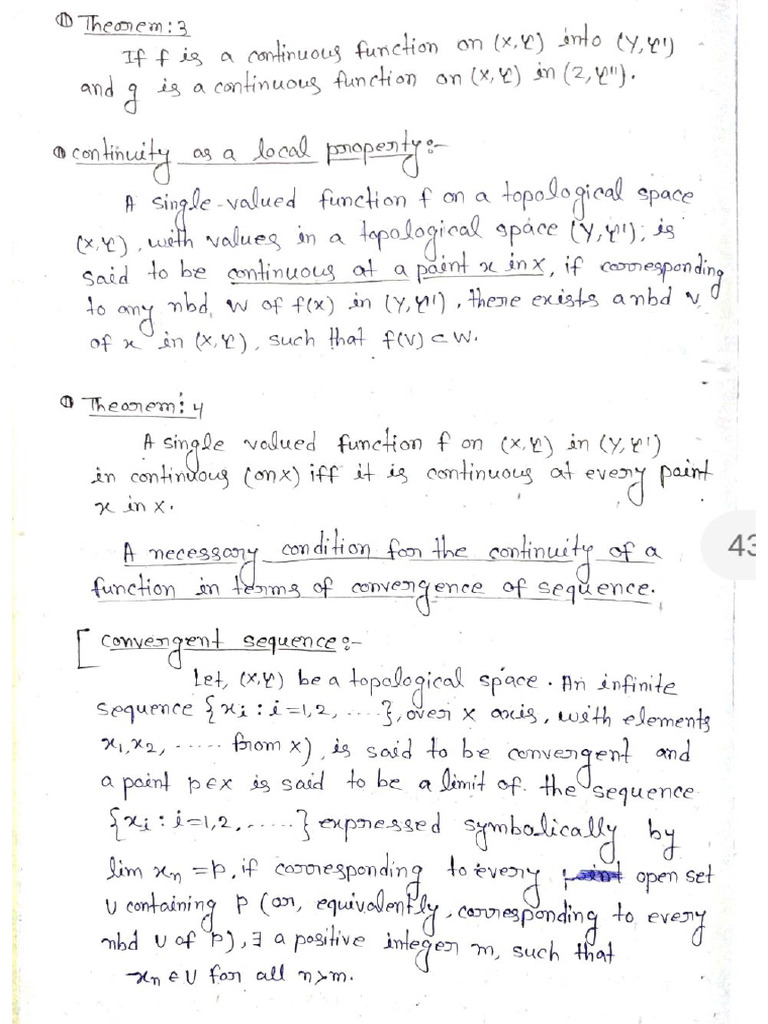 Theorem: 3
If f is a continuous function on (X, τ) into (Y, τ')
and g is a continuous function on (X, τ) in (Z, τ'').
continuity as a local property:-
A single-valued function f on a topological space
(X, τ), with values in a topological space (Y, τ'); is
said to be continuous at a point x in X, if corresponding
to any nbd W of f(x) in (Y, τ'), there exists a nbd V
of x in (X, τ), such that f(V) ⊂ W.
Theorem: 4
A single valued function f on (X, τ) in (Y, τ')
in continuous (on X) iff it is continuous at every point
x in X.
A necessary condition for the continuity of a
function in terms of convergence of sequence.
[ Convergent sequence:-
Let, (X, τ) be a topological space. An infinite
sequence {xi : i=1,2, .....}, over X axis, with elements
x1, x2, ...... from X), is said to be convergent and
a point p∈X is said to be a limit of the sequence
{xi : i=1,2,......} expressed symbolically by
lim xn = p, if corresponding to every open set
U containing p (or, equivalently, corresponding to every
nbd U of p), ∃ a positive integer m, such that
xn ∈ U for all n>m.
43